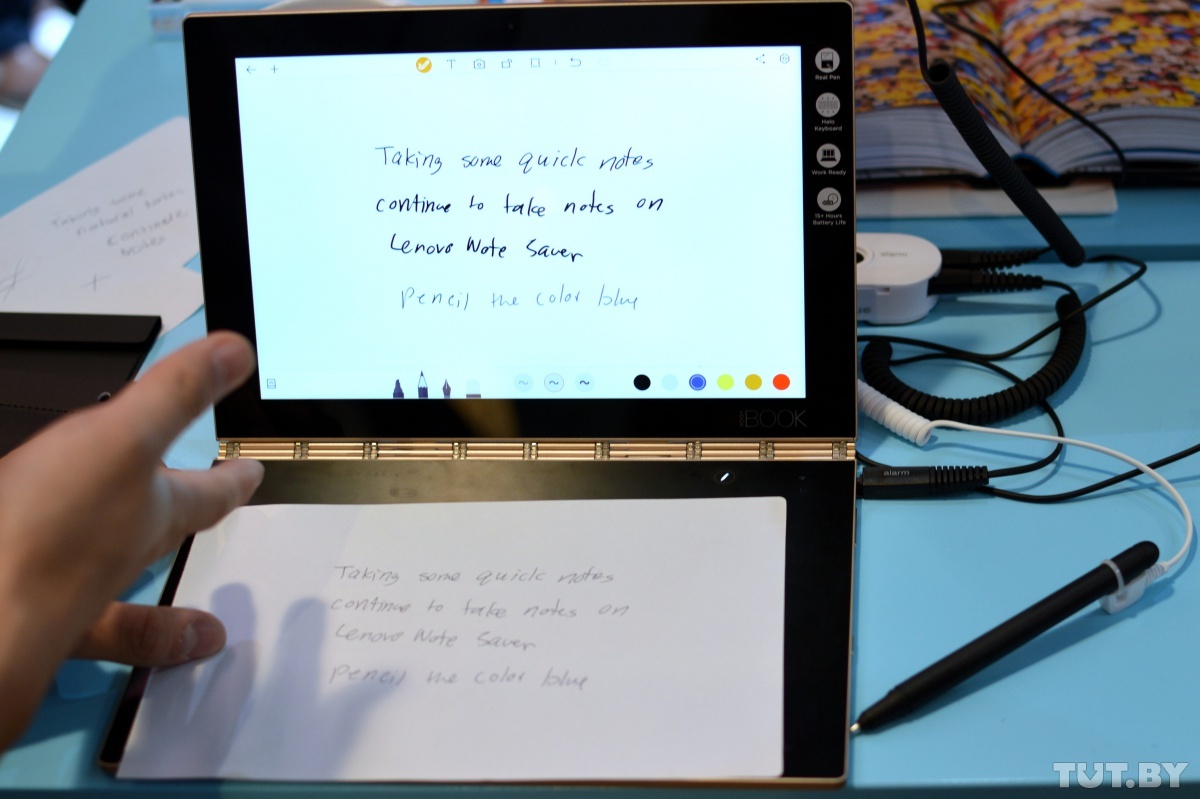 Real Pen
Halo
Keyboard
Work Ready
15+ Hours
Battery Life
T
Taking some quick notes
continue to take notes on
Lenovo Note Saver
Pencil the color blue
YOGA BOOK
Taking some
natural notes
continue
notes
alarm
alarm
Taking some quick notes
continue to take notes on
Lenovo Note Saver
Pencil the color blue
TUT.BY